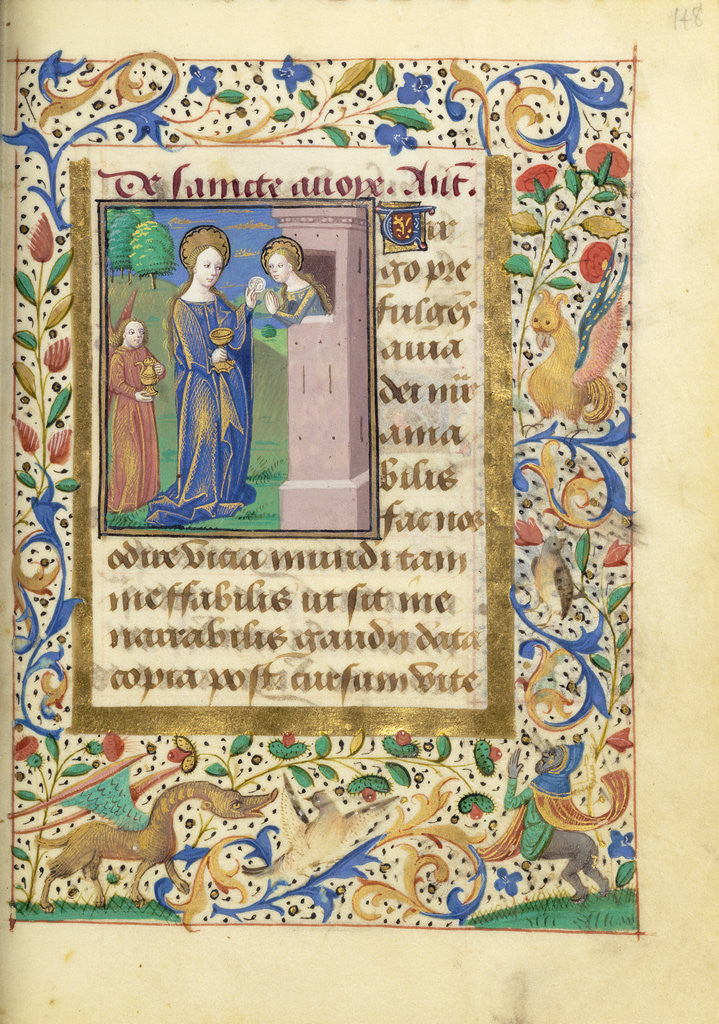 148
De sancte avoye. Ant.
Vir
go pre
fulgẽs
avia
dei nir
ama
bilis
fac nos
odire vicia mundi tam
ineffabilis ut sit ine
narrabilis gaudij data
copia post cursum vite